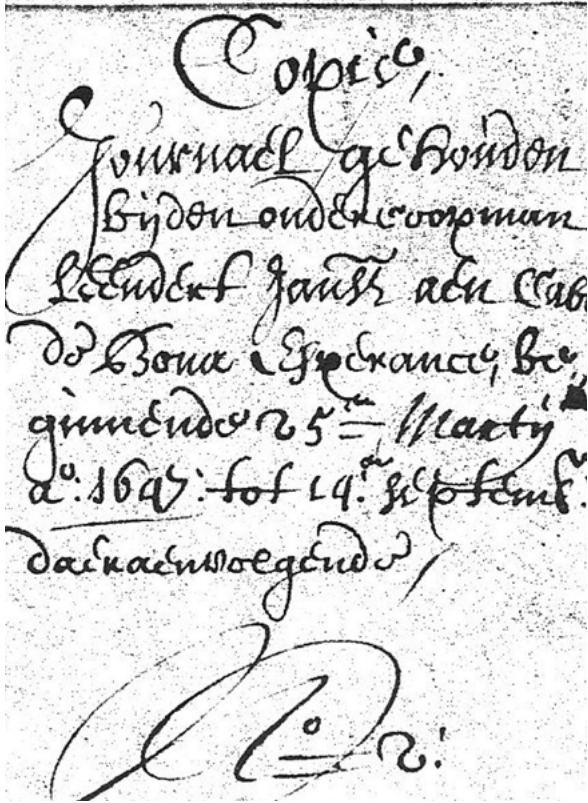 Copie,
Journael gehouden
bijden ondercoopman
Leendert Jansz aen Cab
de Bona Esperance, be,
ginnende 25en Martij
ao: 1647: tot 14en Septemb:
daeraenvolgende,
No 2: